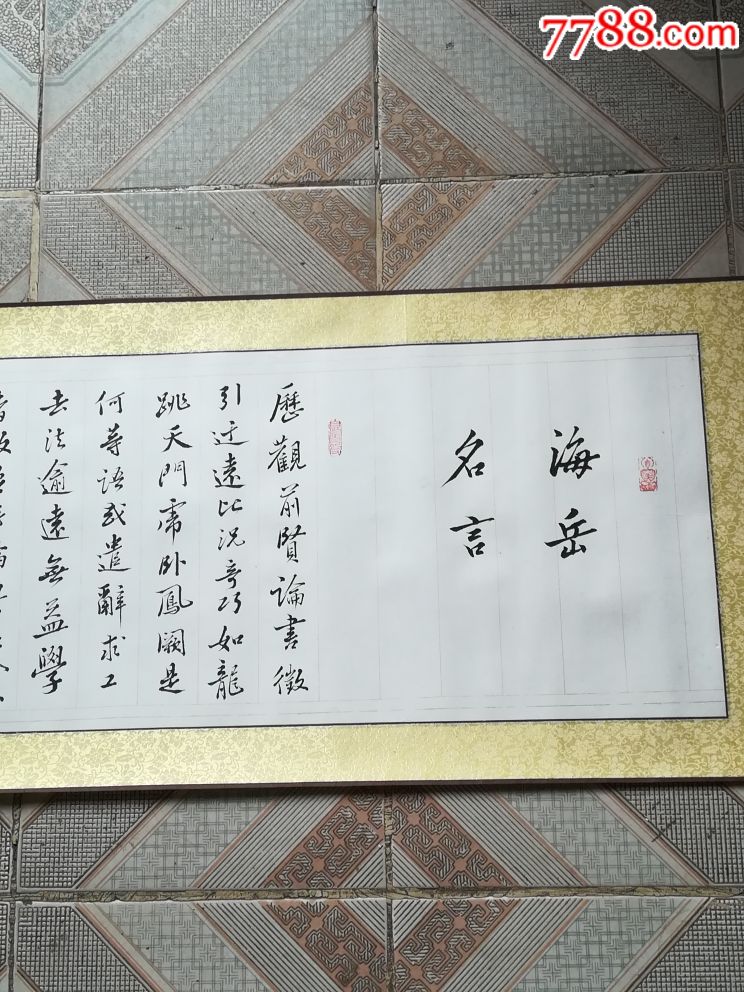 7788.com
海岳
名言
歷觀前賢論書徵
引迂遠比况奇巧如龍
跳天門虎卧鳳闕是
何等語或遣辭求工
去法逾遠無益學